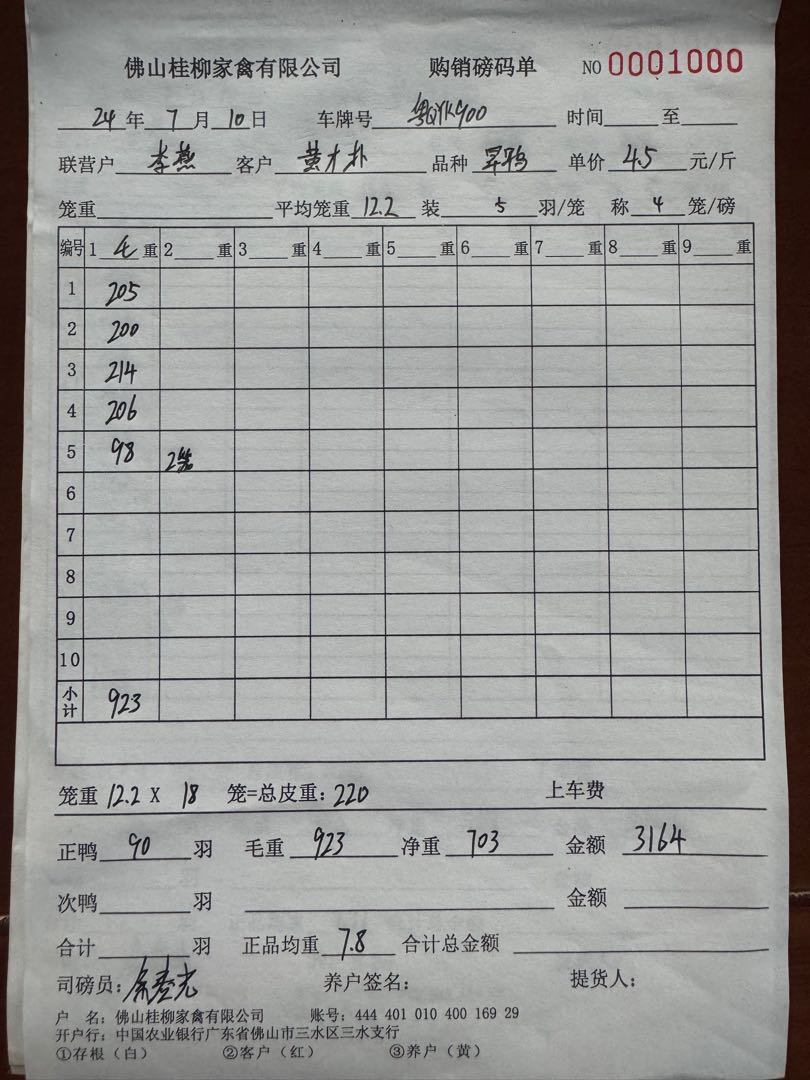 佛山桂柳家禽有限公司 购销磅码单 NO 0001000
24年 7月 10日 车牌号 粤QYK900 时间 至
联营户 李燕 客户 黄才朴 品种 旱鸭 单价 4.5 元/斤
笼重 平均笼重 12.2 装 5 羽/笼 称 4 笼/磅
编号 1 毛 重 2 重 3 重 4 重 5 重 6 重 7 重 8 重 9 重
1 205
2 200
3 214
4 206
5 98 2笼
6
7
8
9
10
小计 923
笼重 12.2 X 18 笼=总皮重: 220 上车费
正鸭 90 羽 毛重 923 净重 703 金额 3164
次鸭 羽 金额
合计 羽 正品均重 7.8 合计总金额
司磅员: 养户签名: 提货人:
户 名: 佛山桂柳家禽有限公司 账号: 444 401 010 400 169 29
开户行: 中国农业银行广东省佛山市三水区三水支行
①存根(白) ②客户(红) ③养户(黄)